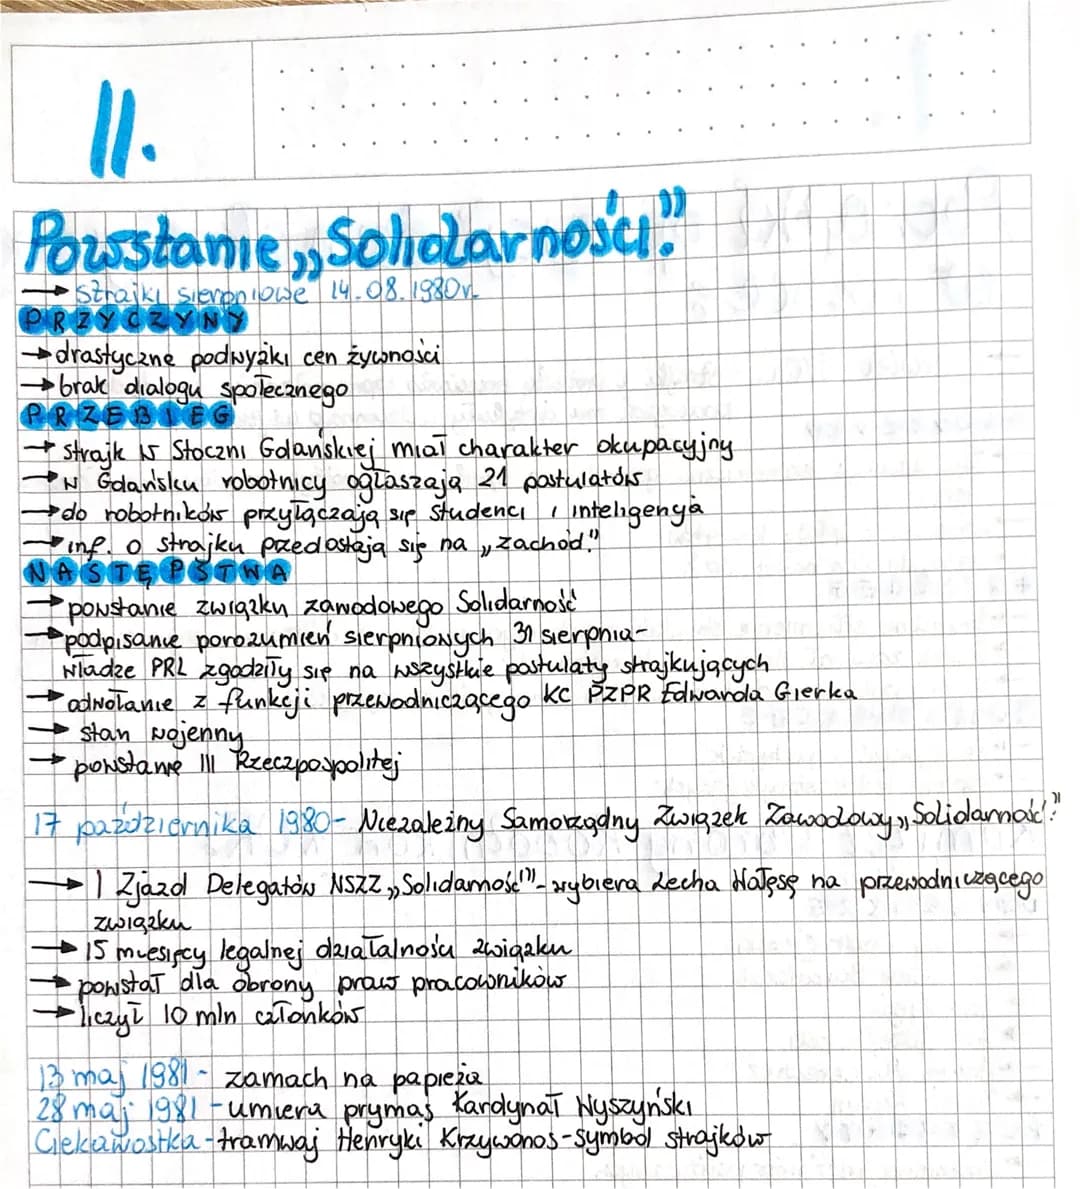 11.
Powstanie „Solidarności."
→ Strajki sierpniowe 14.08.1980r.
PRZYCZYNY
→ drastyczne podwyżki cen żywności
→ brak dialogu społecznego
PRZEBIEG
→ strajk w Stoczni Gdańskiej miał charakter okupacyjny
→ W Gdańsku robotnicy ogłaszają 21 postulatów
→ do robotników przyłączają się studenci i inteligenyja
→ inf. o strajku przedostają się na „zachód."
NASTĘPSTWA
→ powstanie związku zawodowego Solidarność
→ podpisanie porozumień sierpniowych 31 sierpnia-
władze PRL zgodziły się na wszystkie postulaty strajkujących
→ odwołanie z funkcji przewodniczącego KC PZPR Edwarda Gierka
→ stan wojenny
→ powstanie III Rzeczpospolitej
17 października 1980- Niezależny Samorządny Związek Zawodowy „Solidarność."
→ I Zjazd Delegatów NSZZ „Solidarność" - wybiera Lecha Wałęsę na przewodniczącego
związku
→ 15 miesięcy legalnej działalności związku
→ powstał dla obrony praw pracowników
→ liczył 10 mln członków
13 maj 1981 - zamach na papieża
28 maj 1981 - umiera prymas kardynał Wyszyński
Ciekawostka - tramwaj Henryki Krzywonos - symbol strajków